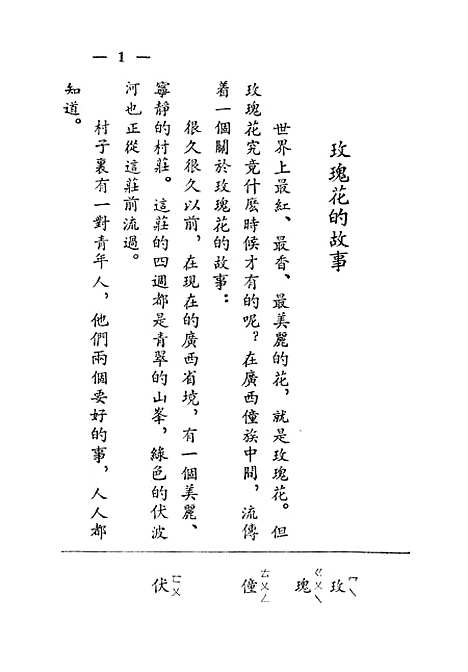 — 1 —
玫瑰花的故事
世界上最紅、最香、最美麗的花，就是玫瑰花。但
玫瑰花究竟什麽時候才有的呢？在廣西僮族中間，流傳
着一個關於玫瑰花的故事：
很久很久以前，在現在的廣西省境，有一個美麗、
寧靜的村莊。這莊的四週都是青翠的山峯，綠色的伏波
河也正從這莊前流過。
村子裏有一對青年人，他們兩個要好的事，人人都
知道。
玫ㄇㄟˊ
瑰ㄍㄨㄟ
僮ㄊㄨㄥˊ
伏ㄈㄨˊ